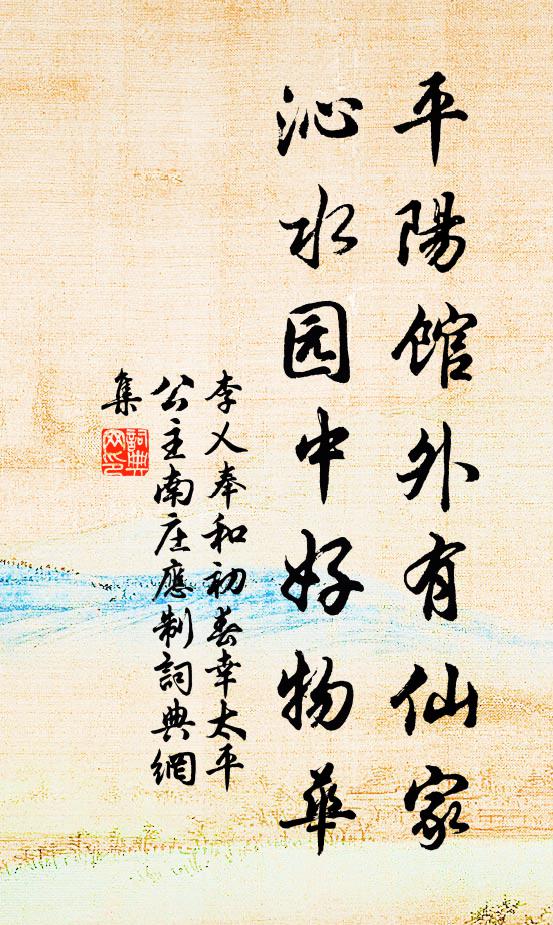 平陽館外有仙家
沁水园中好物華
李乂奉和初春幸太平
公主南庄應制詞典網
集
詞典